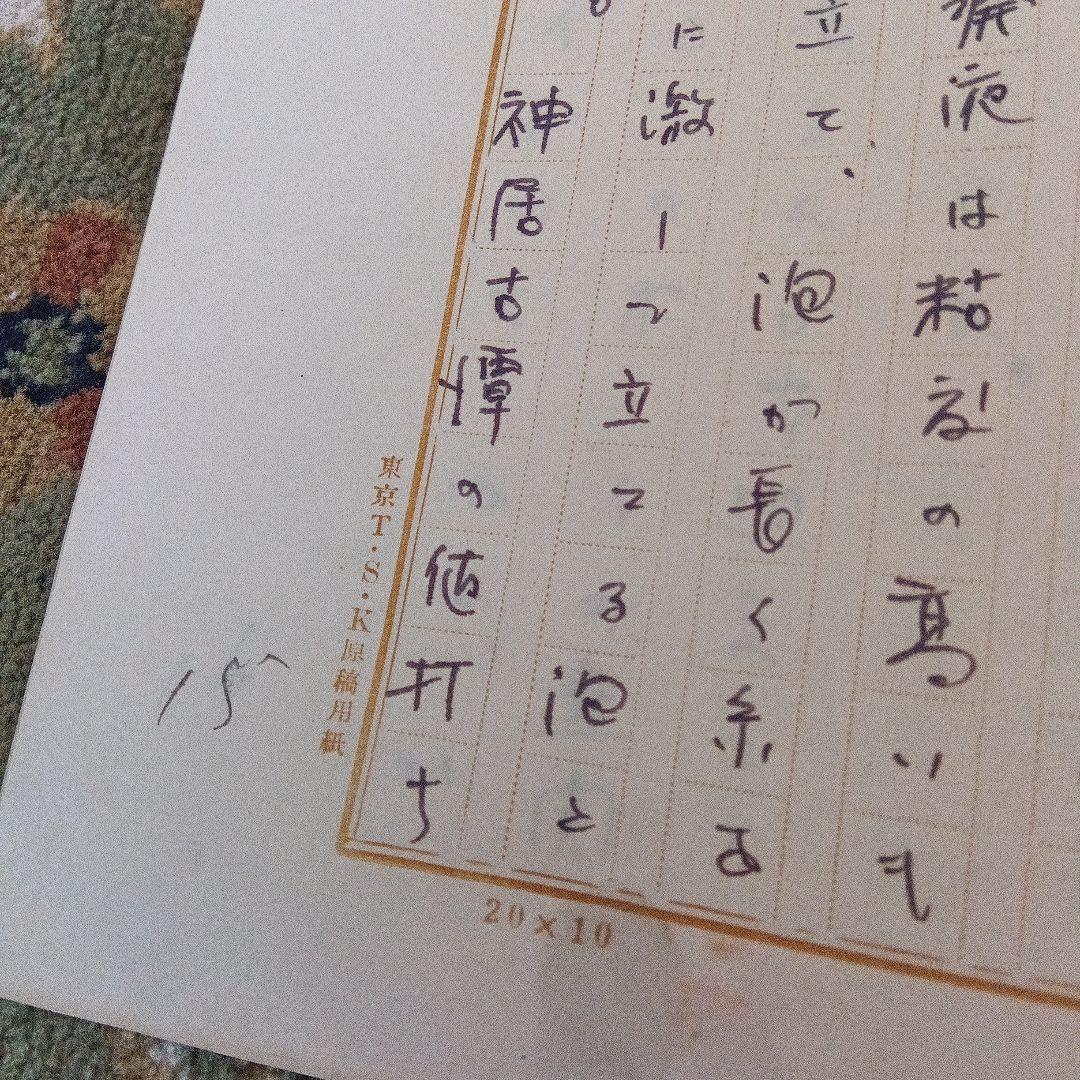 液は粘度の高いも
立て、泡が長く糸を
に激しつ立てる泡と
神居古潭の値打ち
東京T・S・K原稿用紙
15
20×10